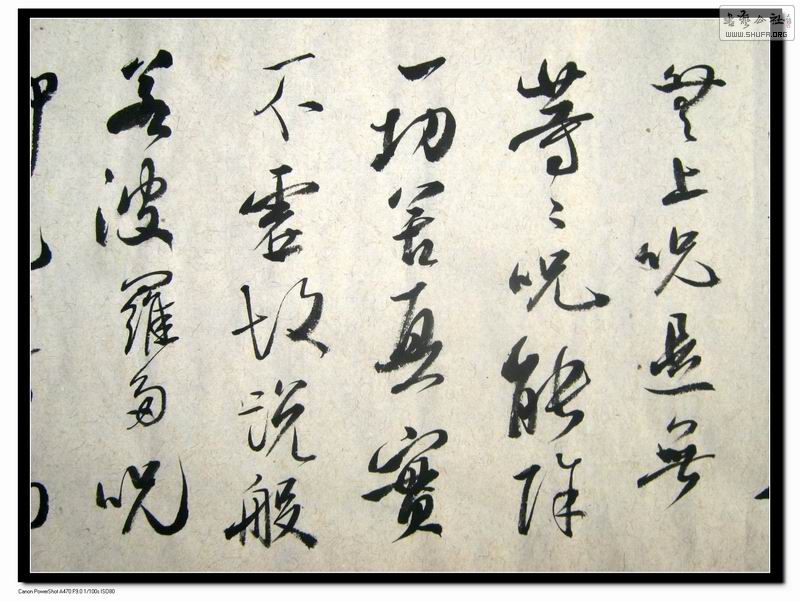 無上呪是無
等々呪能除
一切苦真實
不虛故說般
若波羅多呪
書藝公社
WWW.SHUFA.ORG
Canon PowerShot A470 F9.0 1/100s ISO80